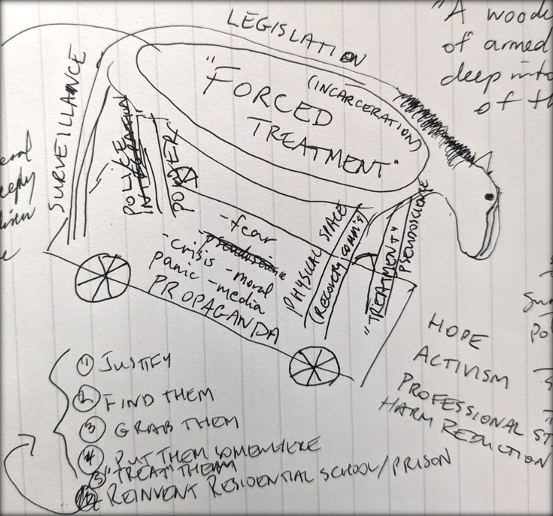 LEGISLATION
"A woode
of armed
deep int
of th
SURVEILLANCE
"FORCED
(INCARCERATION)
TREATMENT"
POLICE
POWER
PHYSICAL SPACE
(RECOVERY COMM'S)
"TREATMENT"
PSEUDOSCIENCE
-fear
-pseudoscience
-crisis -moral
panic -media
PROPAGANDA
HOPE
ACTIVISM
PROFESSIONAL ST
HARM REDUCTION
① JUSTIFY
② FIND THEM
③ GRAB THEM
④ PUT THEM SOMEWHERE
⑤ "TREAT" THEM
REINVENT RESIDENTIAL SCHOOL/PRISON